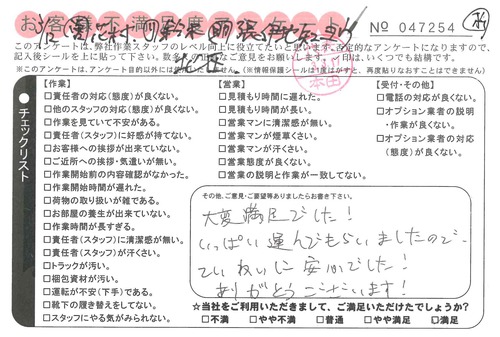 お客様不満足度アンケート
No 047254
このアンケートは、弊社作業スタッフのレベル向上に役立てたいと思います。否定的なアンケートになりますので、
記入後シールを上に貼って下さい。
※このアンケートは、アンケート目的以外には
ません。(※情報保護シールは1度はがすと、再度貼りなおすことはできません)
チェックリスト
【作業】
□責任者の対応(態度)が良くない。
□他のスタッフの対応(態度)が良くない。
□作業を見ていて不安がある。
□責任者(スタッフ)に好感が持てない。
□お客様への挨拶が出来ていない。
□ご近所への挨拶・気遣いが無い。
□作業開始前の内容確認がなかった。
□作業開始時間が遅れた。
□荷物の取り扱いが雑である。
□お部屋の養生が出来ていない。
□作業時間が長すぎる。
□責任者(スタッフ)に清潔感が無い。
□責任者(スタッフ)が汗くさい。
□トラックが汚い。
□梱包資材が汚い。
□運転が不安(下手)である。
□靴下の履き替えをしてない。
□スタッフにやる気がみられない。
【営業】
□見積もり時間に遅れた。
□見積もり時間が長い。
□営業マンに清潔感が無い。
□営業マンが煙草くさい。
□営業マンが汗くさい。
□営業態度が良くない。
□営業の説明と作業が一致してない。
【受付・その他】
□電話の対応が良くない。
□オプション業者の説明
・作業が良くない。
□オプション業者の対応
(態度)が良くない。
その他、ご意見・ご要望等ありましたらお書き下さい。
大変満足でした!
いっぱい運んでもらいましたので、
ていねいに安心でした!
ありがとうございます!
☆当社をご利用いただきまして、ご満足いただけたでしょうか?
□不満 □やや不満 □普通 □やや満足 □満足